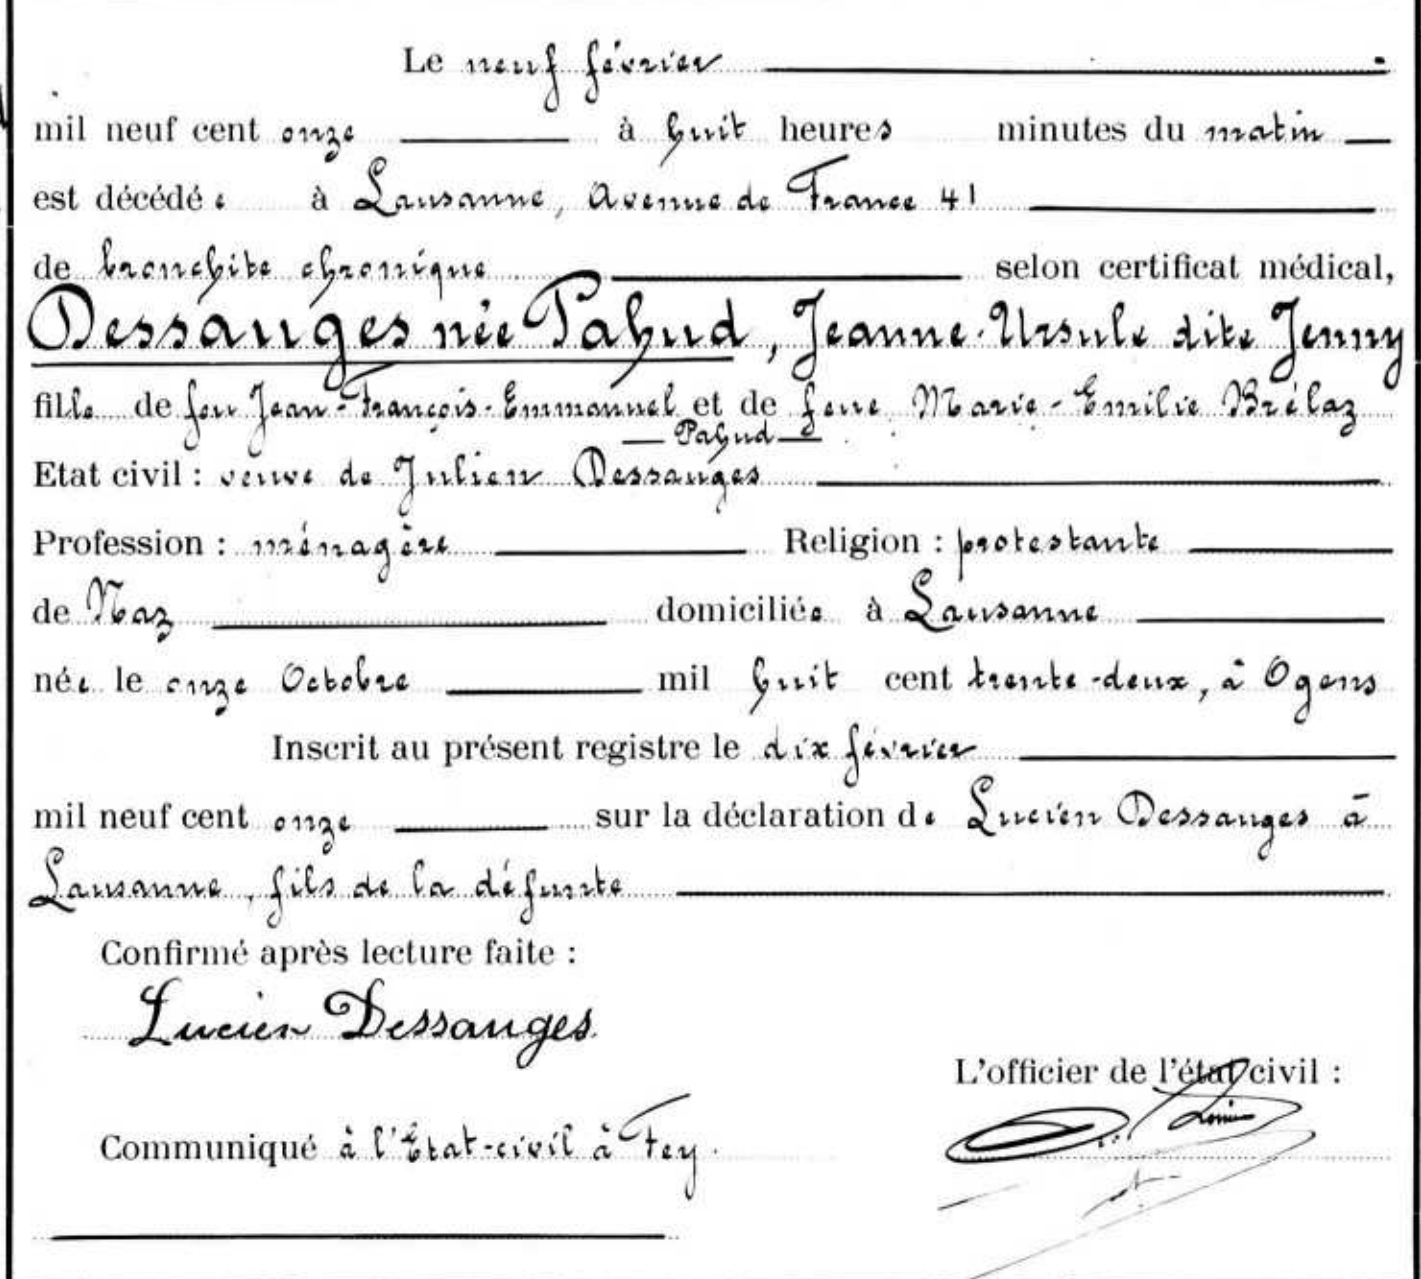 Le neuf février
mil neuf cent onze à huit heures minutes du matin
est décédée à Lausanne, Avenue de France 41
de bronchite chronique selon certificat médical,
Dessauges née Pahud, Jeanne-Ursule dite Jenny
fille de feu Jean-François-Emmanuel et de feue Marie-Emilie Brélaz
— Pahud —
Etat civil : veuve de Julien Dessauges
Profession : ménagère Religion : protestante
de Naz domiciliée à Lausanne
née le onze Octobre mil huit cent trente-deux, à Ogens
Inscrit au présent registre le dix février
mil neuf cent onze sur la déclaration de Lucien Dessauges à
Lausanne, fils de la défunte
Confirmé après lecture faite :
Lucien Dessauges
L'officier de l'état civil :
Communiqué à l'Etat-civil à Fey.